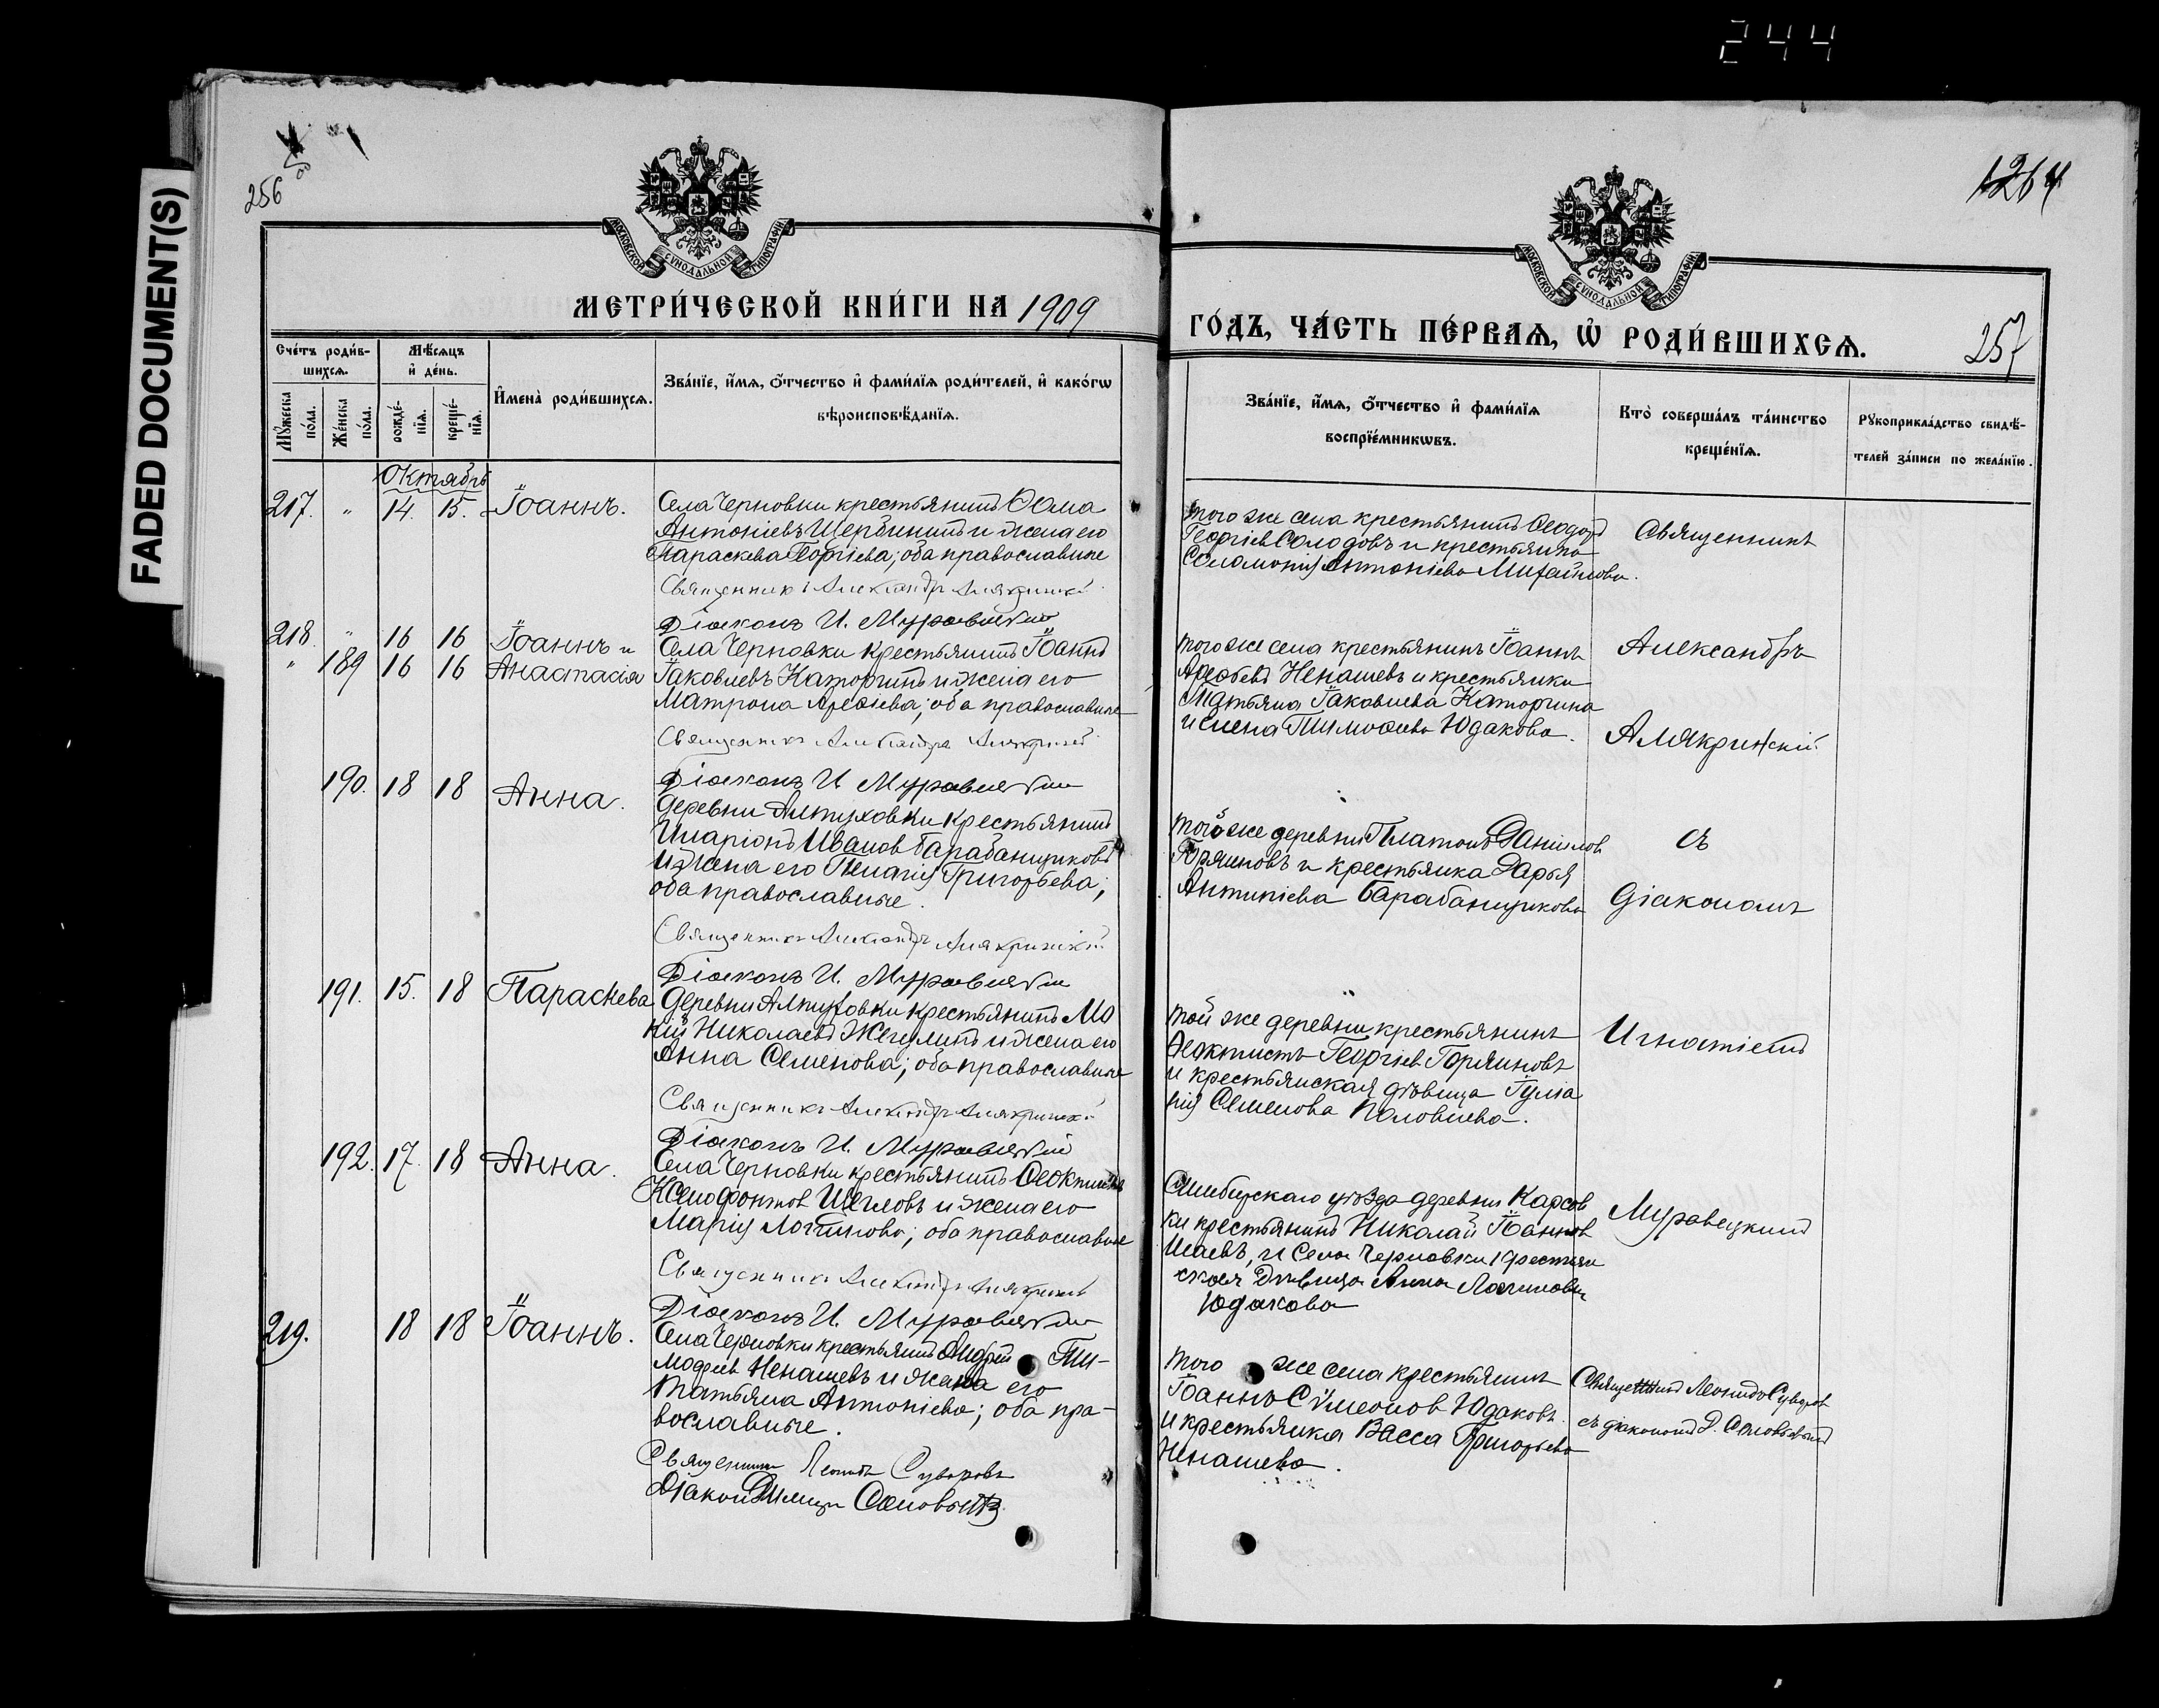 244
FADED DOCUMENT(S)
256
1264
МОСКОВСКОЙ СУНОДАЛЬНОЙ ТИПОГРАФІИ
МОСКОВСКОЙ СУНОДАЛЬНОЙ ТИПОГРАФІИ
МЕТРИ́ЧЕСКОЙ КНИ́ГИ НА 1909
ГО́ДЪ, ЧА́СТЬ ПЕ́РВАѦ, Ѡ҆ РОДИ́ВШИХСѦ.
257
Сче́тъ роди́в-
шихсѧ.
Мѣ́сѧцъ
и҆ де́нь.
Мꙋ́жеска
по́ла.
Же́нска
по́ла.
рожде́-
нїѧ.
креще́-
нїѧ.
И҆мена̀ роди́вшихсѧ.
Зва́нїе, и҆́мѧ, ѻ҆́тчество и҆ фами́лїѧ роди́телей, и҆ како́гѡ
вѣроисповѣ́данїѧ.
Зва́нїе, и҆́мѧ, ѻ҆́тчество и҆ фами́лїѧ
воспрїе́мникѡвъ.
Кто̀ соверша́лъ та́инство
креще́нїѧ.
Рꙋкоприкла́дство свидѣ́-
телей за́писи по жела́нїю.
Октябрь
217. " 14. 15. Іоаннъ.
Села Черновки крестьянинъ Ѳома
Антоніевъ Щербининъ и жена его
Параскева Георгіева; оба православные
Священникъ Александръ Алякринскій
Діаконъ И. Муравецкій
того же села крестьянинъ Ѳеодоръ
Георгіевъ Солодовъ и крестьянка
Соломонія Антоніева Михайлова.
Священникъ
218. " 16 16 Іоаннъ и
" 189 16 16 Анастасія
Села Черновки крестьянинъ Іоаннъ
Іаковлевъ Каторгинъ и жена его
Матрона Арефіева; оба православные
Священникъ Александръ Алякринскій
Діаконъ И Муравецкій
того же села крестьянинъ Іоаннъ
Арефьевъ Ненашевъ и крестьянки
Татьяна Іаковлева Каторгина
и Елена Тимофеева Юдакова.
Александръ
Алякринскій
190. 18 18 Анна.
деревни Алтуховки крестьянинъ
Иларіонъ Иванов Барабанщиковъ
и жена его Пелагія Григорьева;
оба православные.
Священникъ Александръ Алякринскій
Діаконъ И. Муравецкій
той же деревни Платонъ Даніилов
Горяиновъ и крестьянка Дарья
Антипіева Барабанщикова
съ
діакономъ
191. 15. 18 Параскева
деревни Алтуховки крестьянинъ Мо
кій Николаевъ Жегулинъ и жена его
Анна Семенова; оба православные
Священникъ Александръ Алякринскій
Діаконъ И. Муравецкій
той же деревни крестьянинъ
Ѳеоктистъ Георгіев Горяиновъ
и крестьянская дѣвица Іуліа
нія Семенова Половнева.
Игнатіемъ
192. 17. 18 Анна.
Села Черновки крестьянинъ Ѳеоктистъ
Ксенофонтов Щегловъ и жена его
Марія Логгинова; оба православные
Священникъ Александръ Алякринскій
Діаконъ И. Муравецкій
Симбирскаго уѣзда деревни Карсов
ки крестьянинъ Николай Іоаннов
Исаевъ, и села Черновки крестьян
ская Дѣвица Анна Логгинова
Юдакова
Муравецкимъ
219. 18 18 Іоаннъ.
Села Черновки крестьянинъ Андрей Ти-
мофеев Ненашевъ и жена его
Татьяна Антоніева; оба пра-
вославные.
Священникъ Леонидъ Суворовъ
Діаконъ Димитр Соловьевъ
того же села крестьянинъ
Іоаннъ Сѵмеонов Юдаковъ
и крестьянка Васса Григорьева
Ненашева.
Священникъ Леонидъ Суворов
съ діакономъ Д. Соловьевымъ